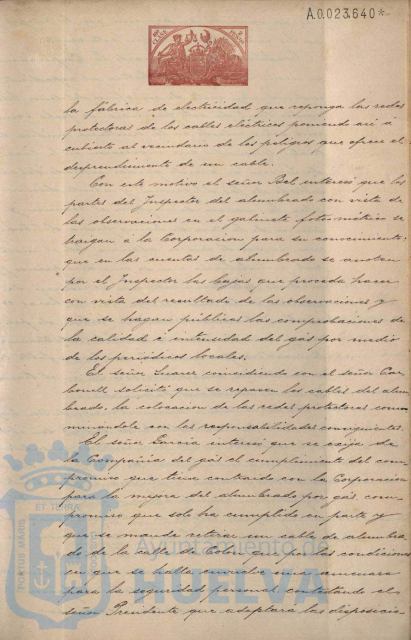 A.0.023.640*
la fábrica de electricidad que reponga las redes
protectoras de los cables eléctricos poniendo así á
cubierto al vecindario de los peligros que ofrece el
desprendimiento de un cable.
Con este motivo el señor Bel interesó que los
partes del Inspector del alumbrado con vista de
las observaciones en el gabinete fotométrico se
traigan á la Corporacion para su conocimiento;
que en las cuentas de alumbrado se anoten
por el Inspector las bajas que proceda hacer
con vista del resultado de las observaciones y
que se hagan públicas las comprobaciones de
la calidad é intensidad del gas por medio
de los periódicos locales.
El señor Suarez coincidiendo con el señor Car
bonell solicitó que se reparen los cables del alum
brado, la colocacion de las redes protectoras conmi
nandole con las responsabilidades consiguientes.
El señor Garcia interesó que se exija de
la Compañia del gas el cumplimiento del com
promiso que tiene contraido con la Corporacion
para la mejora del alumbrado por gas com
promiso que solo ha cumplido en parte y
que se mande retirar un cable de alumbra
do de la calle de Colon que por las condiciones
en que se halla envuelve una amenaza
para la seguridad personal contestando el
señor Presidente que adoptara las disposicio
PORTUS MARIS
ET TERRÆ
Ayuntamiento de
HUELVA